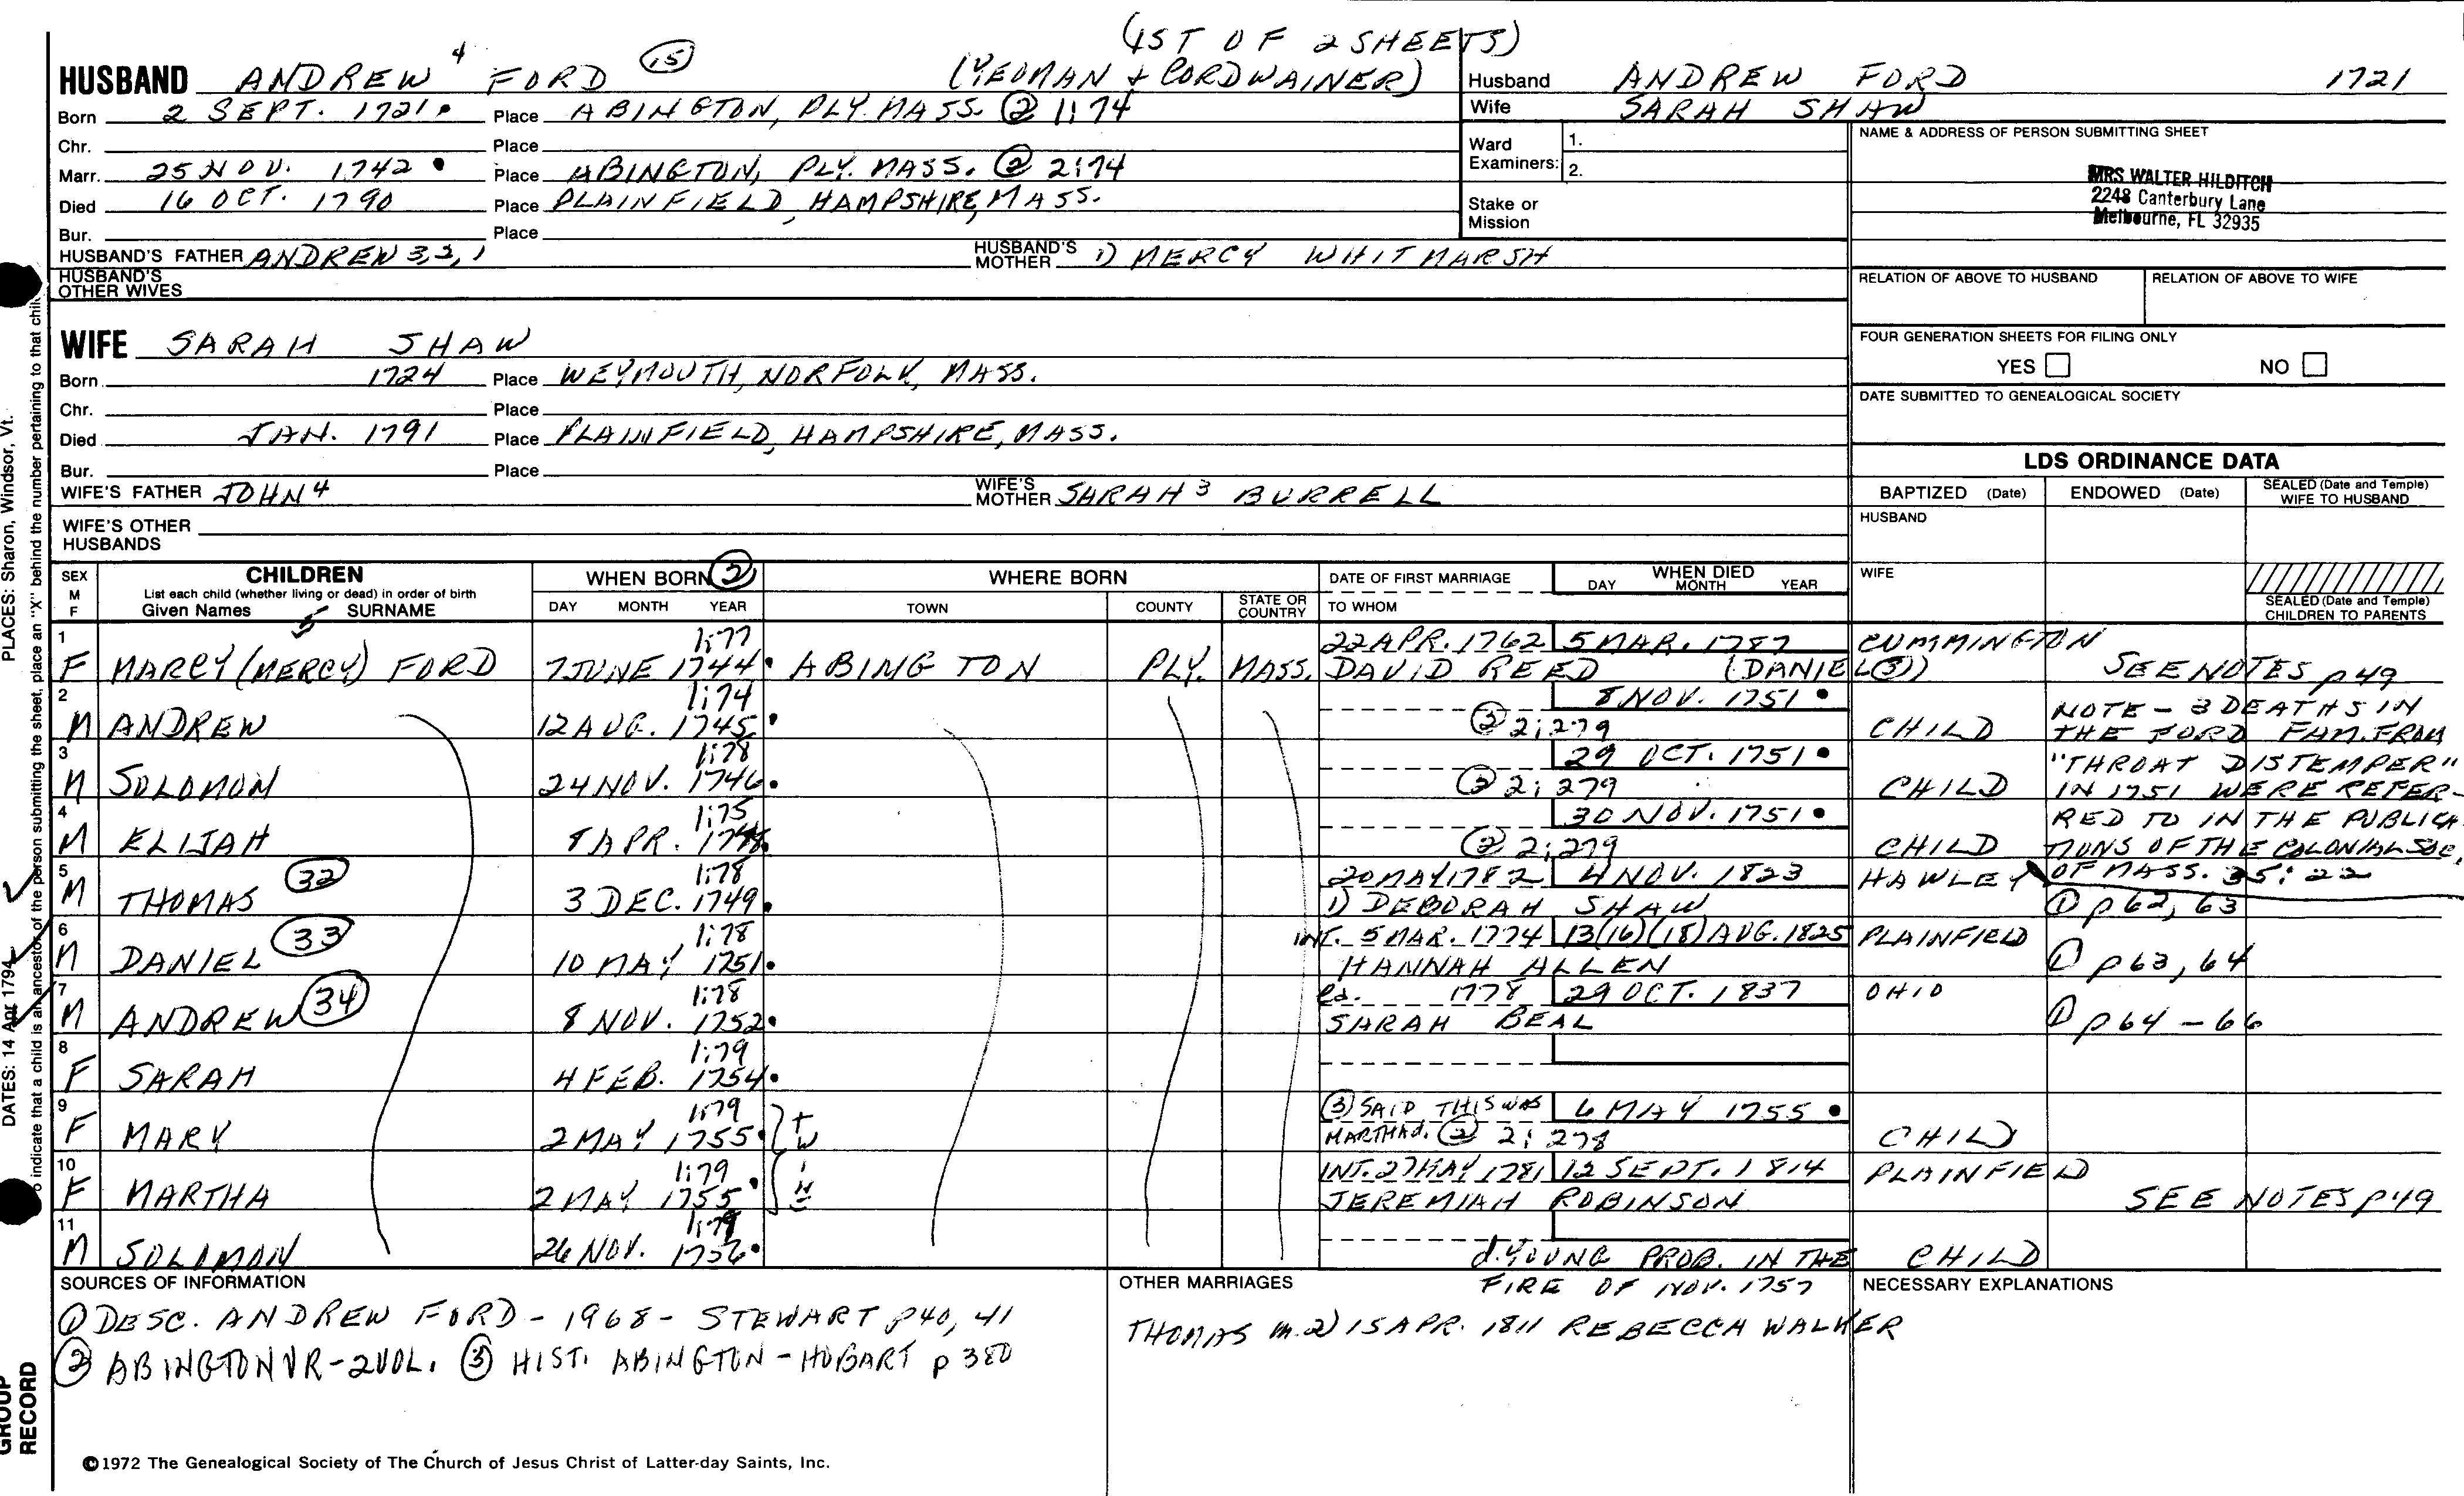 (1ST OF 2 SHEETS)
HUSBAND ANDREW 4 FORD (15) (YEOMAN & CORDWAINER)
Born 2 SEPT. 1721. Place ABINGTON, PLY. MASS. (2) 1:74
Chr. Place
Marr. 25 NOV. 1742 • Place ABINGTON, PLY. MASS. (2) 2:74
Died 16 OCT. 1790 Place PLAINFIELD, HAMPSHIRE, MASS.
Bur. Place
HUSBAND'S FATHER ANDREW 3,2,1 HUSBAND'S MOTHER 1) MERCY WHITMARSH
HUSBAND'S OTHER WIVES
WIFE SARAH SHAW
Born 1724 Place WEYMOUTH, NORFOLK, MASS.
Chr. Place
Died JAN. 1791 Place PLAINFIELD, HAMPSHIRE, MASS.
Bur. Place
WIFE'S FATHER JOHN 4 WIFE'S MOTHER SARAH 3 BURRELL
WIFE'S OTHER HUSBANDS
Husband ANDREW FORD 1721
Wife SARAH SHAW
Ward Examiners: 1.
2.
Stake or Mission
NAME & ADDRESS OF PERSON SUBMITTING SHEET
MRS WALTER HILDITCH
2248 Canterbury Lane
Melbourne, FL 32935
RELATION OF ABOVE TO HUSBAND RELATION OF ABOVE TO WIFE
FOUR GENERATION SHEETS FOR FILING ONLY
YES NO
DATE SUBMITTED TO GENEALOGICAL SOCIETY
LDS ORDINANCE DATA
BAPTIZED (Date) ENDOWED (Date) SEALED (Date and Temple) WIFE TO HUSBAND
HUSBAND
WIFE
SEALED (Date and Temple) CHILDREN TO PARENTS
SEX M F CHILDREN WHEN BORN (2) WHERE BORN DATE OF FIRST MARRIAGE WHEN DIED
List each child (whether living or dead) in order of birth
Given Names 5 SURNAME DAY MONTH YEAR TOWN COUNTY STATE OR COUNTRY TO WHOM DAY MONTH YEAR
1 1:77 22 APR. 1762 5 MAR. 1787 CUMMINGTON
F MARCY (MERCY) FORD 7 JUNE 1744 • ABINGTON PLY. MASS. DAVID REED (DANIEL (3)) SEE NOTES p 49
2 1:74 8 NOV. 1751 •
M ANDREW 12 AUG. 1745 • (2) 2:279 CHILD
3 1:78 29 OCT. 1751 •
M SOLOMON 24 NOV. 1746 • (2) 2:279 CHILD
4 1:75 30 NOV. 1751 •
M ELIJAH 8 APR. 1748. (2) 2:279 CHILD
NOTE - 3 DEATHS IN
THE FORD FAM. FROM
"THROAT DISTEMPER"
IN 1751 WERE REFER-
RED TO IN THE PUBLICA
TIONS OF THE COLONIAL SOC.
OF MASS. 35:22
5 1:78 20 MAY 1782 4 NOV. 1823 HAWLEY
M THOMAS (32) 3 DEC. 1749. 1) DEBORAH SHAW (1) p 62, 63
6 1:78 INT. 5 MAR. 1774 13(16)(18) AUG. 1825 PLAINFIELD
M DANIEL (33) 10 MAY 1751. HANNAH ALLEN (1) p 63, 64
7 1:78 1778 29 OCT. 1837 OHIO
M ANDREW (34) 8 NOV. 1752 • SARAH BEAL (1) p 64-66
8 1:79
F SARAH 4 FEB. 1754 •
9 1:79 (3) SAID THIS WAS 6 MAY 1755 •
F MARY 2 MAY 1755 • TW MARTHA d. (2) 2:278 CHILD
10 1:79 INT. 27 MAY 1781 12 SEPT. 1814 PLAINFIELD
F MARTHA 2 MAY 1755 • IN JEREMIAH ROBINSON SEE NOTES p 49
11 1:79
M SOLOMON 26 NOV. 1756 • d. YOUNG PROB. IN THE CHILD
FIRE OF NOV. 1757
SOURCES OF INFORMATION
(1) DESC. ANDREW FORD - 1968 - STEWART p 40, 41
(2) ABINGTON VR - 2 VOL. (3) HIST. ABINGTON - HOBART p 380
OTHER MARRIAGES
THOMAS m. 2) 15 APR. 1811 REBECCA WALKER
NECESSARY EXPLANATIONS
©1972 The Genealogical Society of The Church of Jesus Christ of Latter-day Saints, Inc.
PLACES: Sharon, Windsor, Vt.
DATES: 14 Apr 1794
GROUP RECORD
o indicate that a child is an ancestor of the person submitting the sheet, place an "X" behind the number pertaining to that child